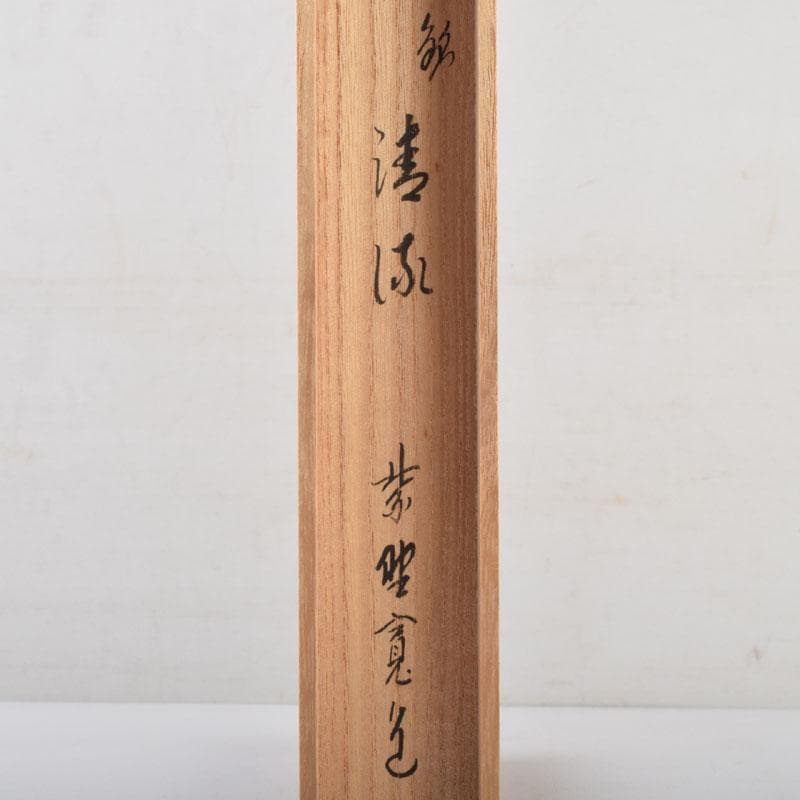 銘
清流
紫野寛道